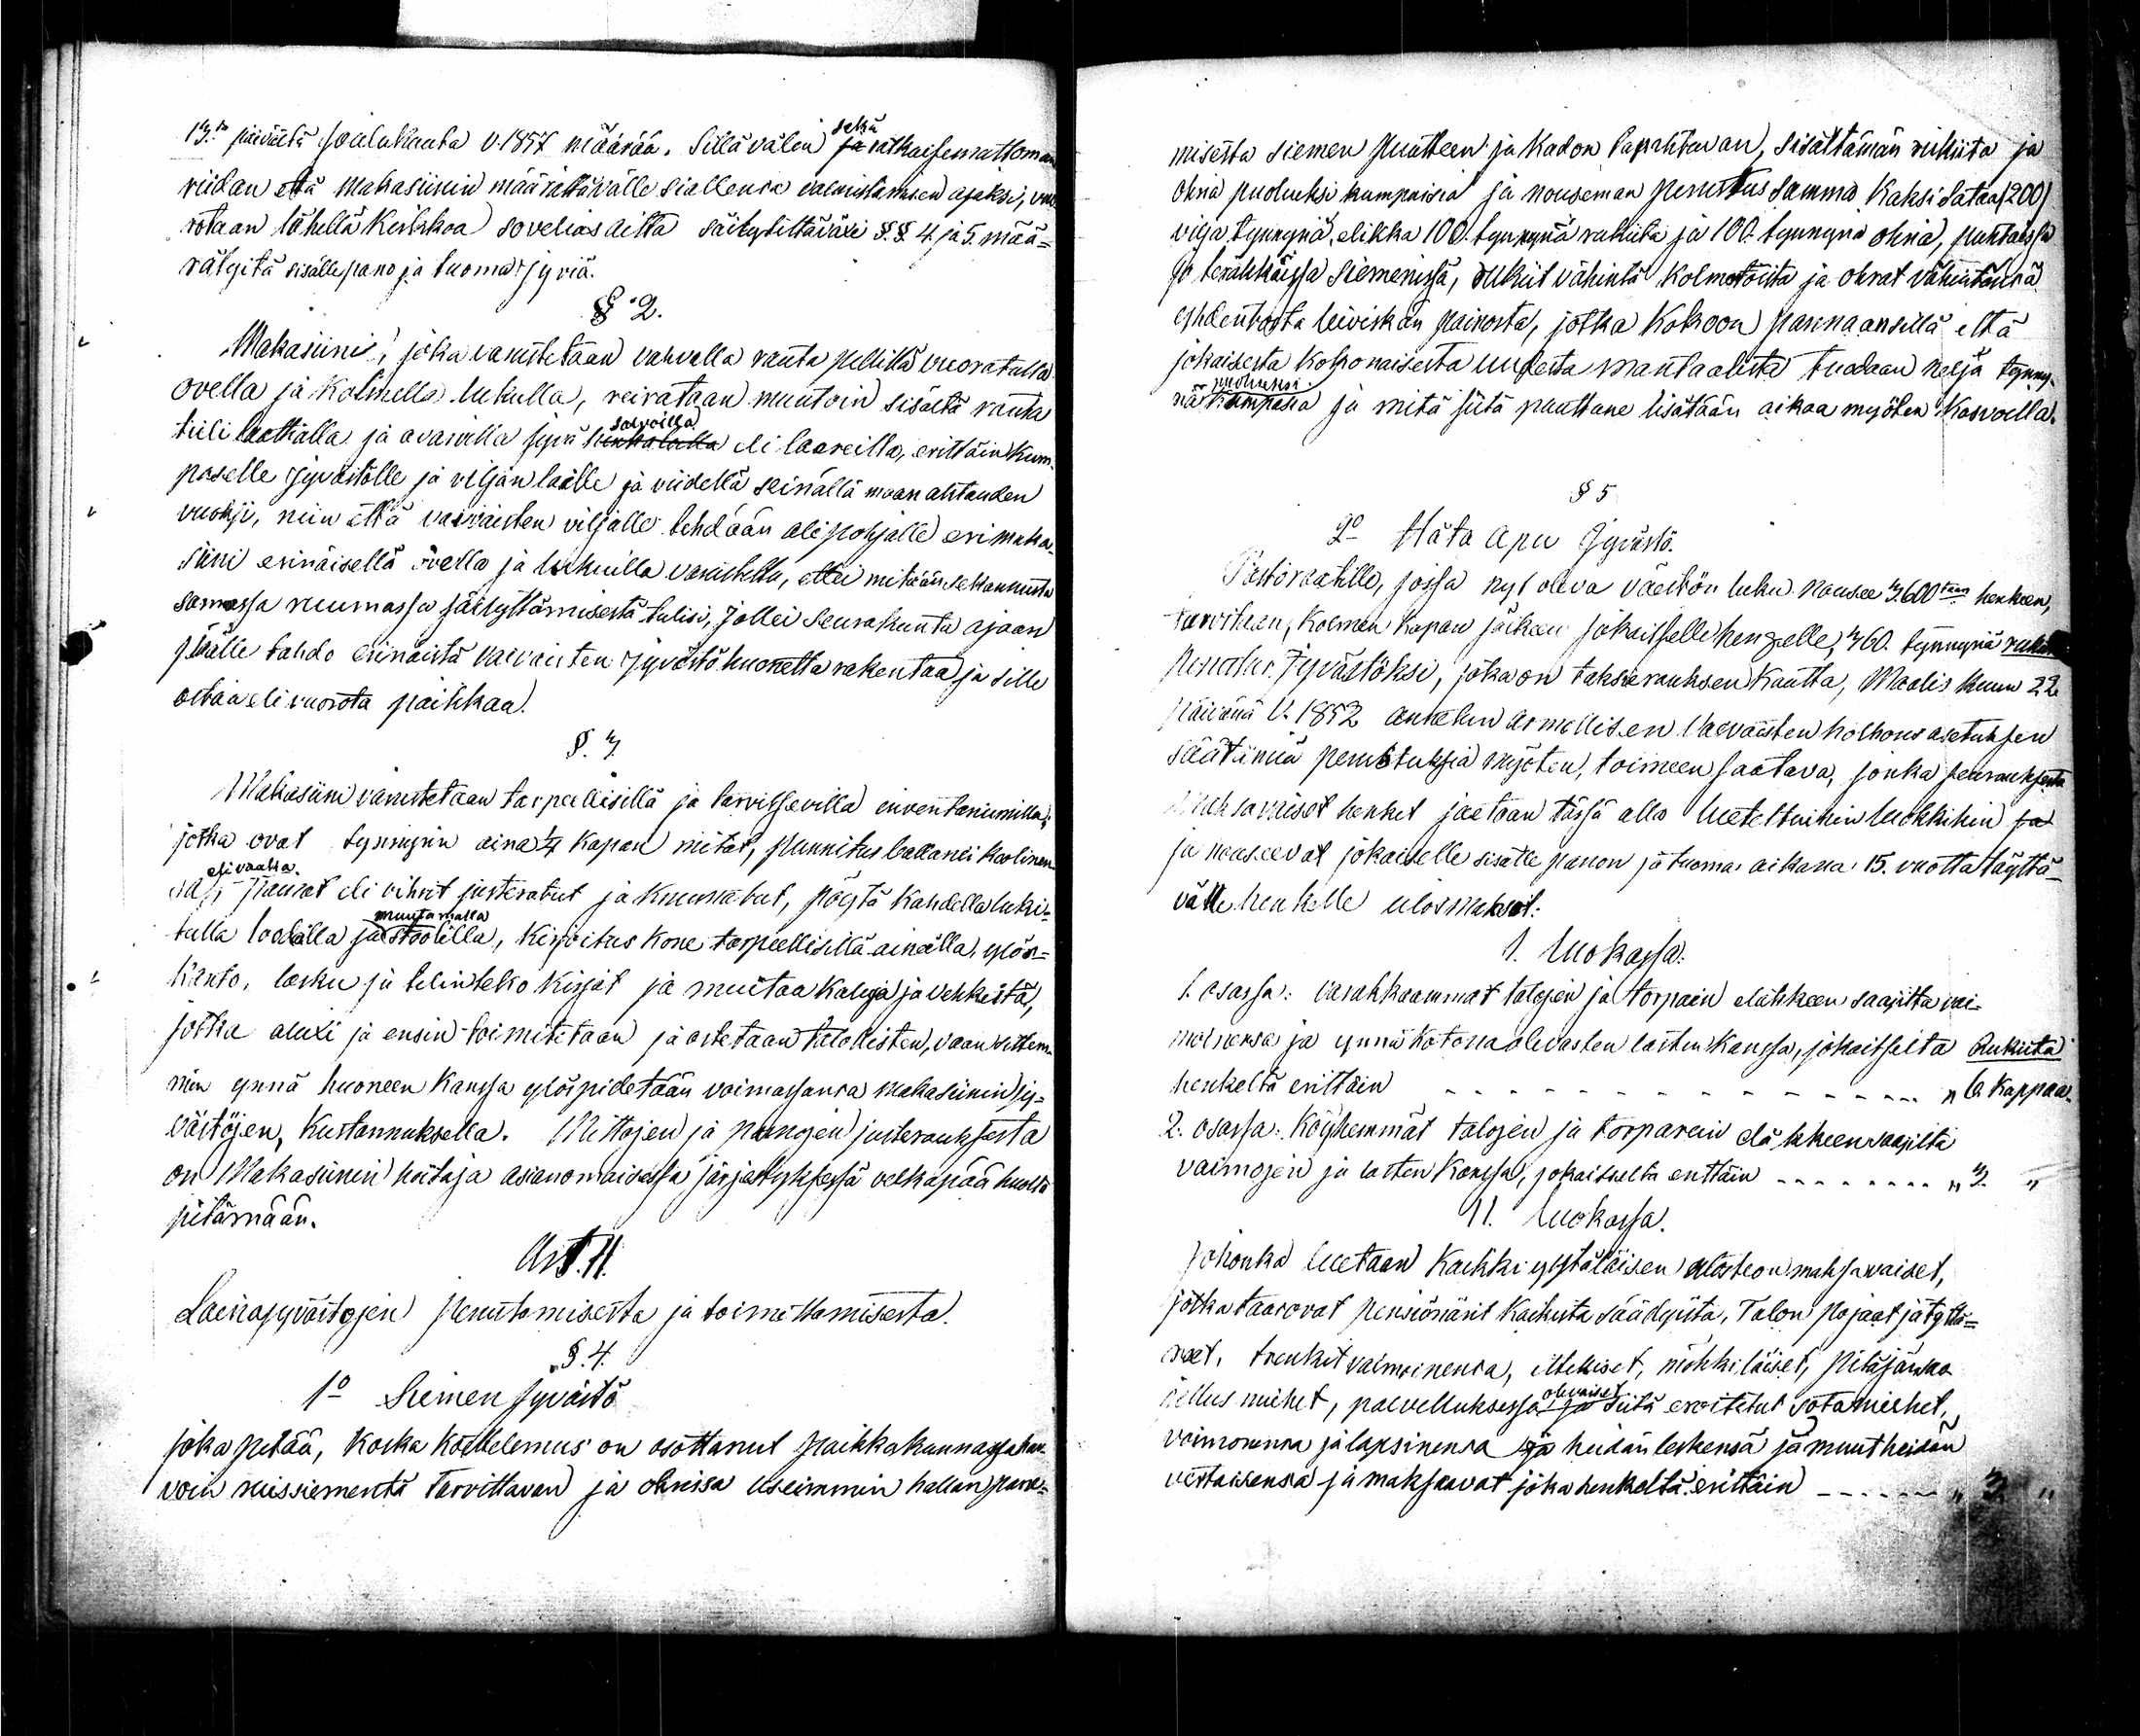 13:n päivältä Joulukuuta V. 1857 määrää. Sillä välin ja sekä ratkaisemattoman
riidan että Makasiinin määrättävälle siallensa valmistamisen ajaksi, vuo
rotaan lähellä Kirkkoa sovelias aitta säilytittäväxi §.§. 4 ja 5. mää=
rätyitä sisälle pano ja tuoma jyviä.
§ 2.
Makasiini, joka varustetaan vahvalla rauta pellillä vuoratulla
ovella ja kolmella lukulla, reivataan muutoin sisältä rauta
tiili lattialla ja avaroilla jyvä salvoilla eli laareilla, erittäin kum-
paselle jyvästölle ja viljan laille ja viidellä seinällä maan ahtauden
vuoksi, niin että vaivaisten viljalle tehdään ali pohjalle eri maka-
siini erinäisellä ovella ja lukuilla varustettu, ettei mitään sekaannusta
samassa ruumassa säilyttämisestä tulisi, jollei Seurakunta ajaan
päälle tahdo erinäistä vaivaisten jyvästö huonetta rakentaa ja sille
ostaa eli vuorota paikkaa.
§. 3.
Makasiini varustetaan tarpeellisilla ja tarvitsevilla inventariumilla,
jotka ovat tynnyrin aina 1/4 Kapan mitat, punnitus ballansi kaolinen-
sa, eli vaaka, painot eli vihrit justeratut ja kruunatut, pöytä kahdella luki-
tulla loodalla ja muutamalla stoolilla, kirjoitus kone tarpeellisilla aineilla, ylös=
kanto, lasku ja tilinteko kirjat ja muitaa kaluja ja vehkeitä,
jotka aluxi ja ensin toimitetaan ja ostetaan talollisten, vaan sittem-
min ynnä huoneen kanssa ylöspidetään voimassansa makasiinin jy=
västöjen, kustannuksella. Mittojen ja painojen justerauksesta
on Makasiinin hoitaja asianomaisessa järjestyksessä velkapää huolta
pitämään.
Art. II.
Lainajyvästojen perustamisesta ja toimittamisesta.
§. 4.
1o Siemen jyvästö
joka pitää, koska koettelemus on osottanut paikkakunnassa har
voin ruissiementä tarvittavan ja ohrissa useimmin hallan pane=
misesta siemen puutteen ja kadon tapahtuvan, sisältämän rukiita ja
ohria puolueksi kumpaisia ja nouseman perustus summa Kaksi sataa (200)
vilja tynnyriä, elikkä 100. tynnyriä rukiita ja 100. tynnyriä ohria, puhtaissa
ja terähkäissä siemenissä, rukiit vähintä kolmetoista ja ohrat vähintänsä
yhdentoista leiviskän painosta, jotka kokoon pannaan sillä että
jokaisesta kokonaisesta uudesta mantaalista tuodaan neljä tynny-
riä puolueksi kumpasia ja mitä siitä puuttune lisätään aikaa myöten kasvolla.
§ 5
2o Hätä apu Jyvästö.
Pastoraatille, jossa nyt oleva väestön luku nousee 3,600 taan henkeen,
tarvitaan, kolmen kapan jälkeen jokaitselle hengelle, 360. tynnyriä rukiita
perustus jyvästöksi, joka on takseerauksen kautta, Maalis kuun 22
päivänä V. 1852 annetun armollisen Vaivaisten holhous asetuksen
säätämiä perustuksia myöten, toimeen saatava, jonka seurauksesta
maksavaiset henket jaetaan tässä alla lueteltuihin luokkihin ja
ja nousevat jokaiselle sisälle panon ja tuoma aikana 15. vuotta täyttä-
välle henkelle ulosmaksot:
I. luokassa:
1. osassa: varahkaammat talojen ja torpain elätkeen saajitta vai-
moinensa ja ynnä kotona olevasten lasten kanssa, jokaitselta Rukiita
henkeltä erittäin - - - - - - - - - - - - - - - - „ 6. Kappaa.
2. osassa: Köyhemmät talojen ja torparein elä keen saajilta
vaimojen ja lasten kanssa, jokaitselta erittäin - - - - - - - - „ 3. „
II. luokassa.
Johonka luetaan kaikki yxytäläisen ulosteon maksavaiset,
jotka taas ovat pensiönärit kaikista säädyistä, Talon pojaat ja tyttä=
reet, trenkit vaimoinensa, ittelliset, mökkiläiset, pitäjänkä
sellus miehet, palvelluksessa olevaiset ja siitä eroitetut sotamiehet,
vaimonensa ja lapsinensa ja heidän leskensä ja muut heidän
vertaisensa ja maksaavat joka henkeltä erittäin - - - - - - - „ 3 „